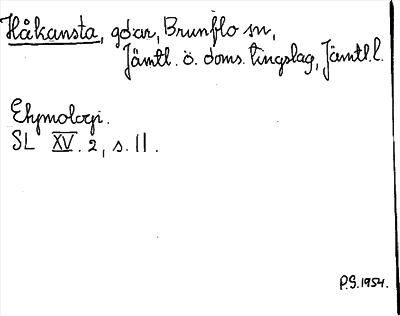 Håkansta, gdar, Brunflo sn,
Jämtl. ö. doms. tingslag, Jämtl.l.
Etymologi.
SL XV. 2, s. 11.
P.G. 1954.